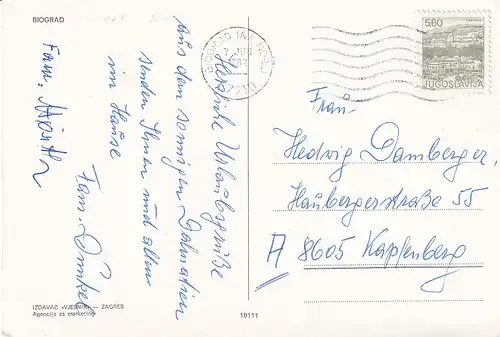 BIOGRAD
Herzliche Urlaubsgrüße
aus dem sonnigen Dalmatien
senden Ihnen und allen
im Hause
Fam.
Fam.
IZDAVAČ »VJESNIK« — ZAGREB
Agencija za marketing
10111
BIOGRAD NA
7
5,60
JUGOSLAVIJA
Frau
Hedwig Damberger,
Haubergerstraße 55
A 8605 Kapfenberg